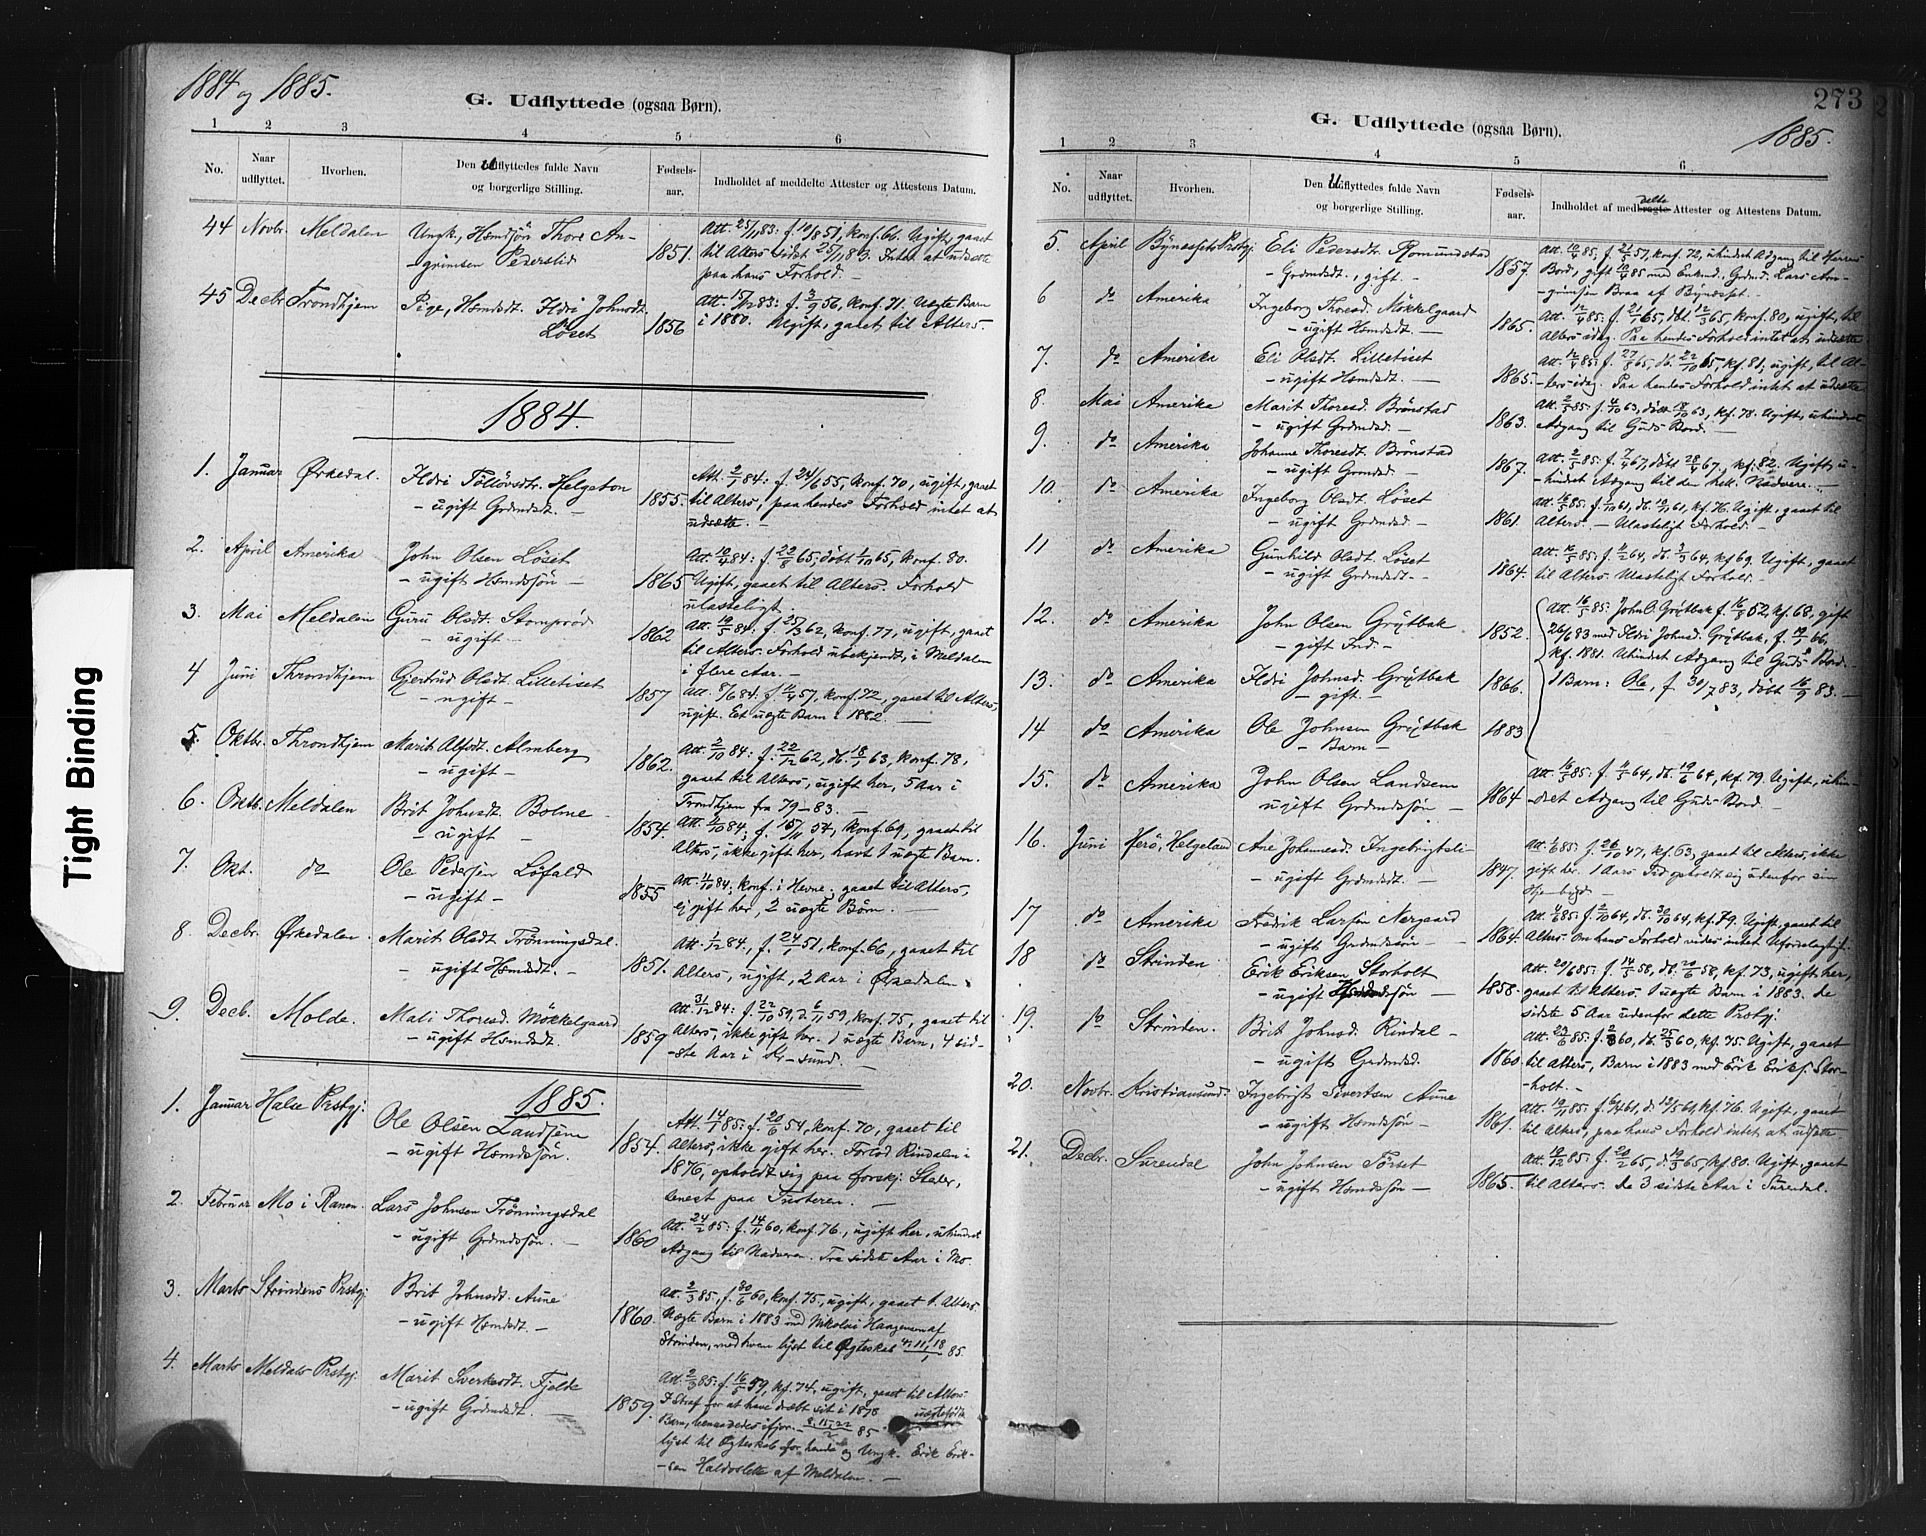 1884 og 1885.
G. Udflyttede (ogsaa Børn).
1 2 3 4 5 6
No. Naar udflyttet. Hvorhen. Den Udflyttedes fulde Navn og borgerlige Stilling. Fødsels-aar. Indholdet af meddelte Attester og Attestens Datum.
44 Novbr. Meldalen Ungk., Hsmdsøn Thore An-
grimsen Pederslid 1851.
Att. 25/11 83: f. 10/8 51, konf. 66. Ugift, gaaet
til Alters sidst 25/11 83. Intet at udsætte
paa hans Forhold. –
45 Decbr. Trondhjem Pige, Hsmdsdt. Ildri Johnsdt.
Løset 1856
Att. 15/12 83: f. 3/9 56, konf. 71. Uægte Barn
i 1880. Ugift, gaaet til Alters.
1884.
1. Januar Ørkedal. Ildri Tollovsdtr. Helgeton
– ugift Grdmdsdt. – 1855.
Att. 2/1 84: f. 24/6 55, konf. 70, ugift, gaaet
til Alters, paa hendes Forhold intet at
udsætte. –
2. April Amerika John Olsen Løset
– ugift Hsmdssøn – 1865
Att. 10/4 84: f. 22/8 65; døbt 1/10 65, konf. 80.
Ugift, gaaet til Alters. Forhold
ulasteligt.
3. Mai Meldalen Guru Olsdt. Stomprød
– ugift – 1862
Att. 10/5 84: f. 25/3 62, konf. 77, ugift, gaaet
til Alters. Forhold ubekjendt, i Meldalen
i flere Aar. –
4 Juni Throndhjem Gjertrud Olsdt. Lilletiset
– ugift – 1857
Att. 8/6 84. f. 11/4 57, konf. 72, gaaet til Alters,
ugift. Et uægte Barn i 1882. –
5. Oktbr. Throndhjem Marit Alfsdt. Almberg
– ugift – 1862.
Att. 2/10 84: f. 22/12 62, db. 18/1 63, konf. 78,
gaaet til Alters, ugift her, 5 Aar i
Trondhjem fra 79–83. –
6. Oktb. Meldalen Brit Johnsdt. Bolme
– ugift – 1854.
Att. 2/10 84; f. 15/11 54, konf. 69, gaaet til
Alters, ikke gift her, havt 1 uægte Barn.
7. Okt. do Ole Pedersen Løfald
– ugift – 1855
Att. 11/10 84; konf. i Hevne; gaaet til Alters,
ej gift her, 2 uægte Børn. –
8 Decbr. Ørkedalen. Marit Olsdt. Trønningsdal.
– ugift Hsmdsdt. – 1851.
Att. 1/12 84., f. 24/1 51, konf. 66, gaaet til
Alters, ugift, 2 Aar i Ørkedalen.
9. Decb. Molde. Mali Thoresd. Møkkelgaard
– ugift Hsmdsdt. 1859
Att. 31/12 84: f. 22/10 59, d. 6/11 59, konf. 75, gaaet til
Alters, ikke gift her. 1 uægte Barn, 4 sid-
ste Aar i Kr-sund. –
1885.
1. Januar Halse Prstgj: Ole Olsen Landsem
– ugift Hsmdssøn. 1854.
Att. 14/1 85: f. 20/6 54, konf. 70, gaaet til
Alters, ikke gift her. Forlod Rindalen i
1876, opholdt sig paa forskj. Steder,
senest paa Tusteren. –
2. Februar Mo i Ranen. Lars Johnsen Trönningsdal
– ugift Grdmdssøn. – 1860
Att. 24/2 85: f. 14/11 60, konf. 76., ugift her, uhindret
Adgang til Nadveren. Tre sidste Aar i Mo.
3. Marts Strindens Prstgj: Brit Johnsdt. Aune
– ugift Hsmdsdt. – 1860.
Att. 2/3 85, f. 30/6 60, konf. 75., ugift, gaaet t. Alters.
Uægte Barn i 1883 med Nikolai Haagensen af
Strinden, med hvem lyst til Ægteskab 4, 11, 18/1 85.
4. Marts Meldals Prstgj: Marit Sverkesdt. Fjelde
– ugift Grdmdsdt. – 1859.
Att. 2/3 85: f. 16/5 59, kf. 74, ugift, gaaet til Alters.
I Straf for at have dræbt sit i 1878 uægtefødte
Barn, benaadedes ifjor. – 8, 15, 22/2 85
lyst til Ægteskab for hende og Ungk. Erik Erik-
sen Haldoslette af Meldalen. –
273
1885.
G. Udflyttede (ogsaa Børn).
1 2 3 4 5 6
No. Naar udflyttet. Hvorhen. Den Udflyttedes fulde Navn og borgerlige Stilling. Fødsels-aar. Indholdet af meddelte Attester og Attestens Datum.
5. April Bynæssets Prstgj: Eli Pedersdt. Romundstad
– Grdmdsdt., gift – 1857.
Att. 10/4 85: f. 21/5 57, konf. 72, uhindret Adgang til Herrens
Bord, gift 10/4 85 med Enkmd. Grdmd. Lars Arn-
grimsen Braa af Bynæsset. –
6 do Amerika Ingeborg Thoresd. Møkkelgaard
– ugift Hsmdsdt. – 1865.
Att. 12/4 85: f. 2/1 65, dbt. 12/3 65, konf. 80, ugift, til
Alters idag. Paa hendes Forhold intet at udsætte
7. do Amerika Eli Olsdt. Lilletiset
– ugift Hsmdsdt. – 1865.
Att. 12/4 85: f. 27/8 65, db. 22/10 65, kf. 81, ugift, til Al-
ters idag. Paa hendes Forhold intet at udsætte
8. Mai Amerika Marit Thoresd. Brönstad
– ugift Grdmdsd. – 1863.
Att. 2/5 85: f. 4/10 63, döbt 18/10 63, kf. 78. Ugift, uhindret
Adgang til Guds Bord. –
9. do Amerika Johanne Thoresdt. Brönstad
– ugift Grdmdsd. – 1867.
Att. 2/5 85: f. 7/4 67, döbt 28/4 67., kf. 82. Ugift, u-
hindret Adgang til den hell. Nadvere. –
10. do Amerika Ingeborg Olsdt. Löset
– ugift Grdmdsd. – 1861.
Att. 16/5 85: f. 61, db. 61, kf. Ugift, gaaet til
Alters. – Ulasteligt Forhold. –
11 do Amerika Gunhild Olsdt. Löset
– ugift Grdmdsdt. – 1864.
Att. 16/5 85: f. 11/2 64, d. 64, kf 69. Ugift, gaaet
til Alters. Ulasteligt Forhold. –
12. do Amerika John Olsen Gröttbak
– gift Ind. – 1852.
Att. 16/5 85: John O. Gröttbak f. 16/8 52, kf. 68, gift
26/6 83 med Ildri Johnsd. Gröttbak, f. 66,
kf. 1881. Uhindret Adgang til Guds Bord. –
1 Barn: Ole, f. 30/7 83, döbt 16/9 83. –
13. do Amerika Ildri Johnsd. Gröttbak
– gift. – 1866.
14 do Amerika Ole Johnsen Gröttbak
– Barn – 1883
15. do Amerika John Olsen Landsem
ugift Grdmdssøn – 1864
Att. 16/5 85: f. 11/5 64, db. 19/6 64, kf. 79. Ugift, uhin-
dret Adgang til Guds Bord. –
16. Juni Herö, Helgeland Ane Johannesd. Ingebrigtsli
– ugift Grdmdsdt. – 1847
Att. 1/6 85: f. 26/10 47, kf. 63, gaaet til Alters, ikke
gift her. 1 Aars Tid opholdt sig udenfor sin
Hjembygd –
17 do Amerika Fredrik Larsen Nergaard
– ugift Grdmdssön – 1864.
Att. 4/6 85: f. 2/10 64, db. 30/10 64, kf. 79. Ugift, gaaet til
Alters. Om hans Forhold vides intet Ufordelagtigt.
18 do Strinden Erik Eriksen Storholt
– ugift Hsmdssøn – 1858
Att. 20/6 85: f. 14/5 58, db. 20/6 58, kf. 73, ugift her,
gaaet til Alters. 1 uægte Barn i 1883. De
sidste 5 Aar udenfor dette Prstgj:
19. do Strinden. Brit Johnsd. Rindal –
– ugift Grdmdsd. 1860.
Att. 22/6 85: f. 60, db. 25/3 60, kf. 75. Ugift, gaaet
til Alters, Barn i 1883 med Erik Eriks. Stor-
holt. –
20. Novbr. Kristiansund. Ingebrigt Sivertsen Aune
– ugift Hsmdssøn – 1861.
Att. 19/11 85: f. 6/4 61, d. 12/5 61, kf. 76. Ugift, gaaet
til Alters, paa hans Forhold intet at udsætte.
21. Decbr. Surendal John Johnsen Törset
– ugift Hsmdssøn – 1865.
Att. 12/12 85: f. 20/2 65, d. 19/3 65, kf 80. Ugift, gaaet
til Alters. De 3 sidste Aar i Surendal.
Tight Binding